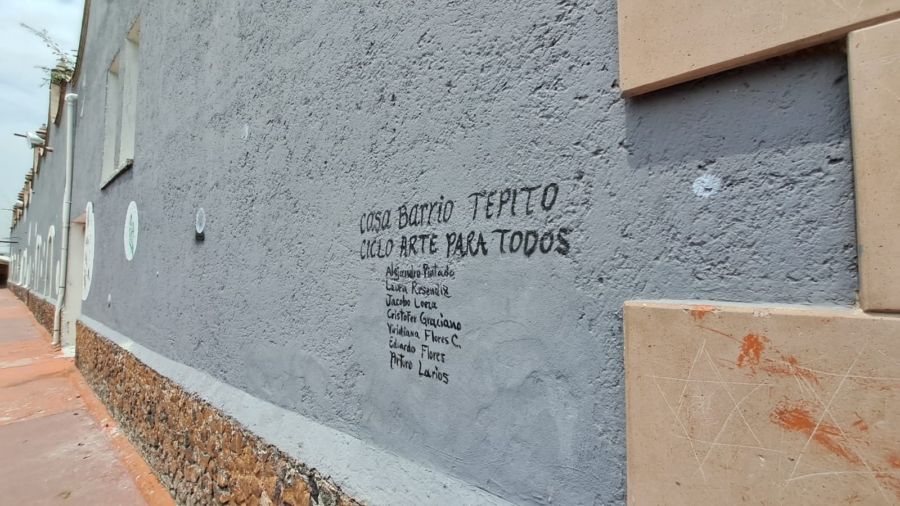 casa Barrio TEPITO
CICLO ARTE PARA TODOS
Alejandro Pintado
Laura Resendiz
Jacobo Loeza
Cristofer Graciano
Viridiana Flores C.
Eduardo Flores
Arturo Larios